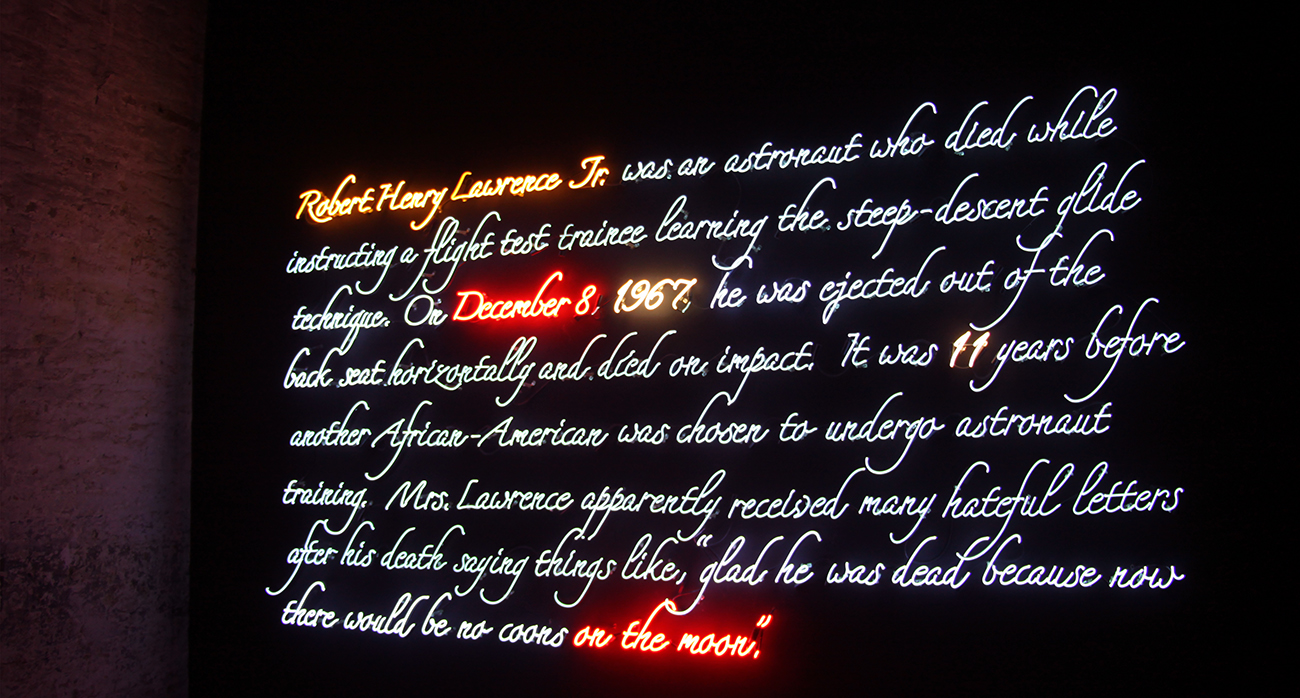 Robert Henry Lawrence Jr. was an astronaut who died while
instructing a flight test trainee learning the steep-descent glide
technique. On December 8, 1967, he was ejected out of the
back seat horizontally and died on impact. It was 11 years before
another African-American was chosen to undergo astronaut
training. Mrs. Lawrence apparently received many hateful letters
after his death saying things like, "glad he was dead because now
there would be no coons on the moon".